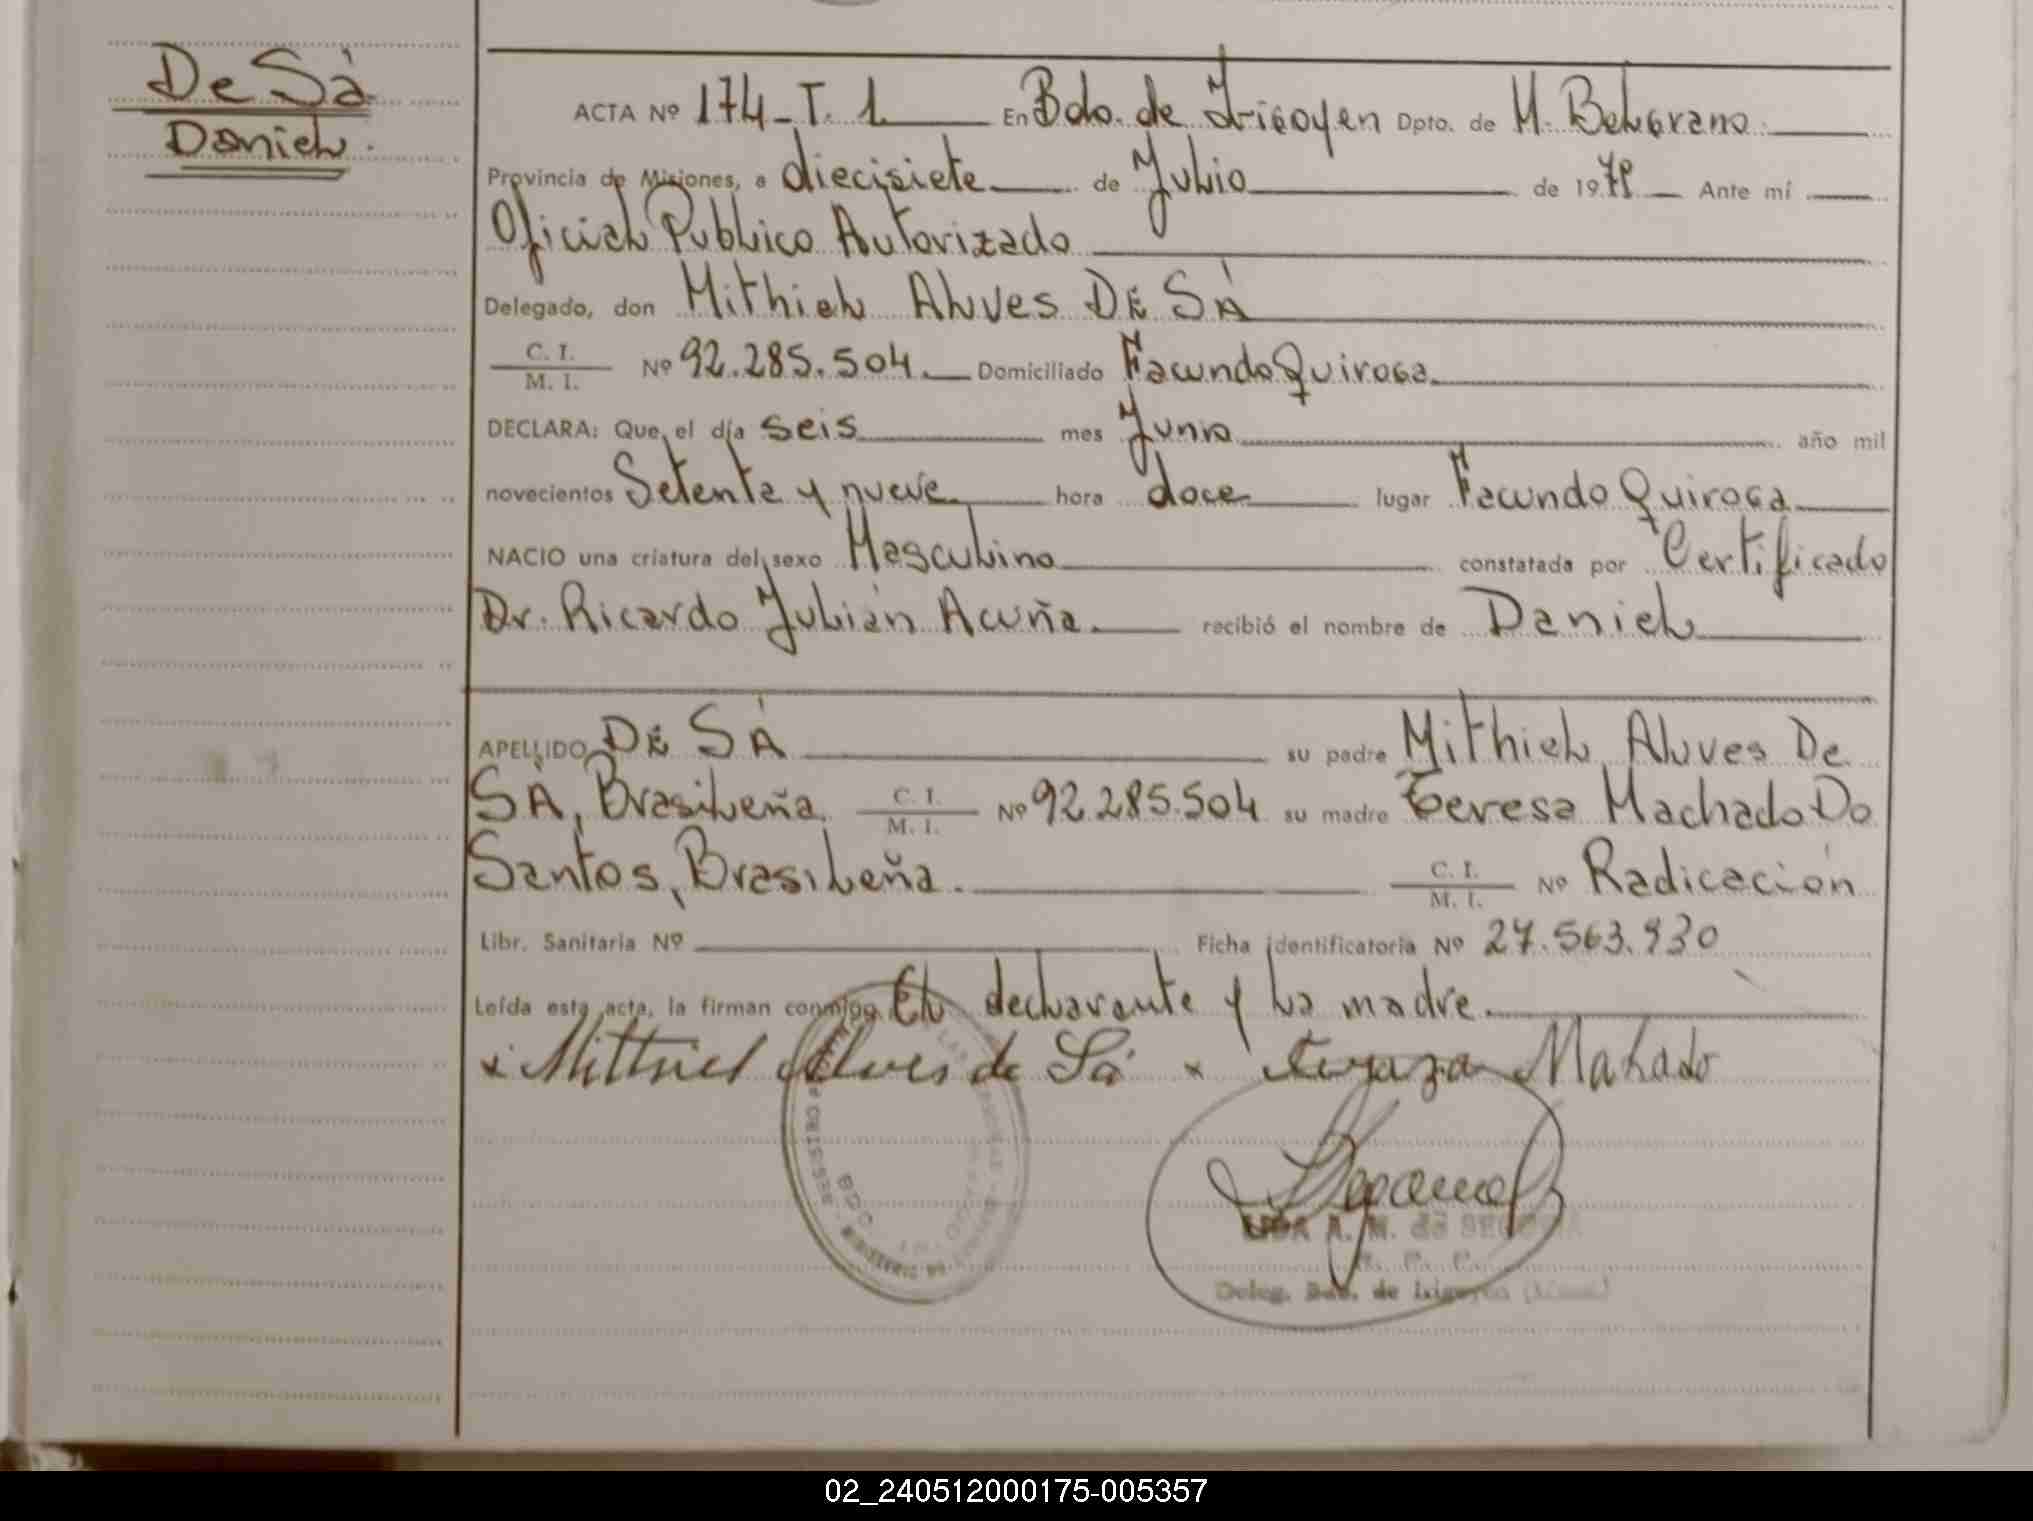 De Sà
Daniel.
ACTA Nº 174_T. 1. En Bdo. de Irigoyen Dpto. de M. Belgrano.
Provincia de Misiones, a diecisiete de Julio de 1979 Ante mí
Oficial Publico Autorizado
Delegado, don Mithiel Alves DE SÀ
C. I.
M. I. Nº 92.285.504. Domiciliado Facundo Quiroga.
DECLARA: Que el día seis mes Junio año mil
novecientos Setenta y nueve hora doce lugar Facundo Quiroga
NACIO una criatura del sexo Masculino constatada por Certificado
Dr. Ricardo Julián Acuña. recibió el nombre de Daniel
APELLIDO DE SÀ su padre Mithiel Alves De
SÀ, Brasileña. C. I. M. I. Nº 92.285.504 su madre Teresa Machado Do
Santos, Brasileña. C. I. M. I. Nº Radicación
Libr. Sanitaria Nº Ficha identificatoria Nº 27.563.930
Leída esta acta, la firman conmigo El declarante y la madre.
x Mithiel Alves de Sá x Tereza Mahado
A. M. de
Deleg. Bdo. de Irigoyen
02_240512000175-005357